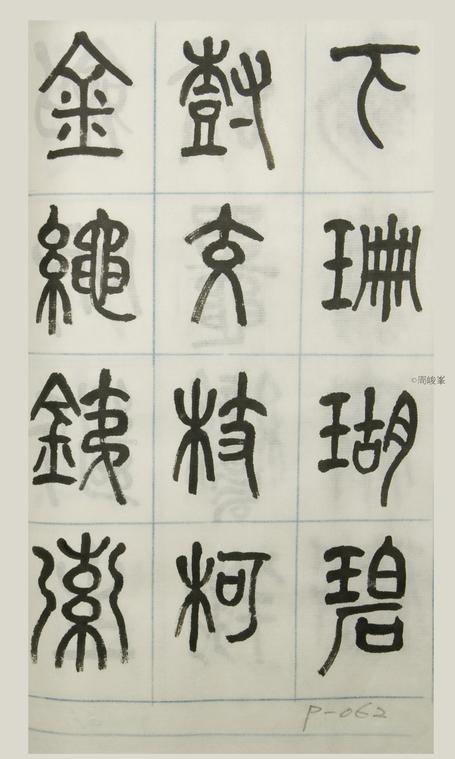 下珊瑚碧
樹交枝柯
金繩銕索
©周峻峯
P-062